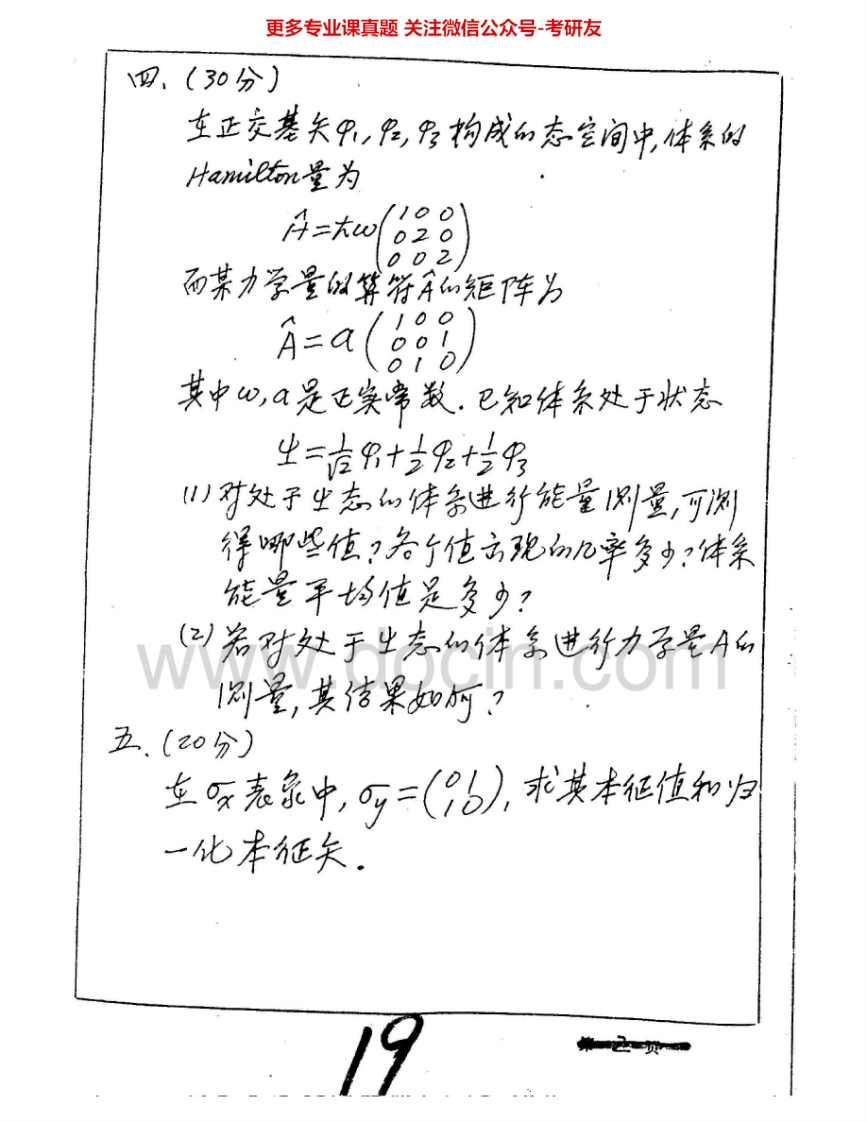 更多专业课真题 关注微信公众号-考研友
四、(30分)
在正交基矢φ₁,φ₂,φ₃构成的态空间中,体系的
Hamilton量为
Ĥ=ħω(1 0 0
0 2 0
0 0 2)
而某力学量的算符Â的矩阵为
Â=a(1 0 0
0 0 1
0 1 0)
其中ω,a是正实常数.已知体系处于状态
ψ=1/√2 φ₁+1/2 φ₂+1/2 φ₃
(1)对处于ψ态的体系进行能量测量,可测
得哪些值?各个值出现的几率多少?体系
能量平均值是多少?
(2)若对处于ψ态的体系进行力学量A的
测量,其结果如何?
www.docin.com
五、(20分)
在σx表象中,σy=(0 1
1 0),求其本征值和归
一化本征矢.
19